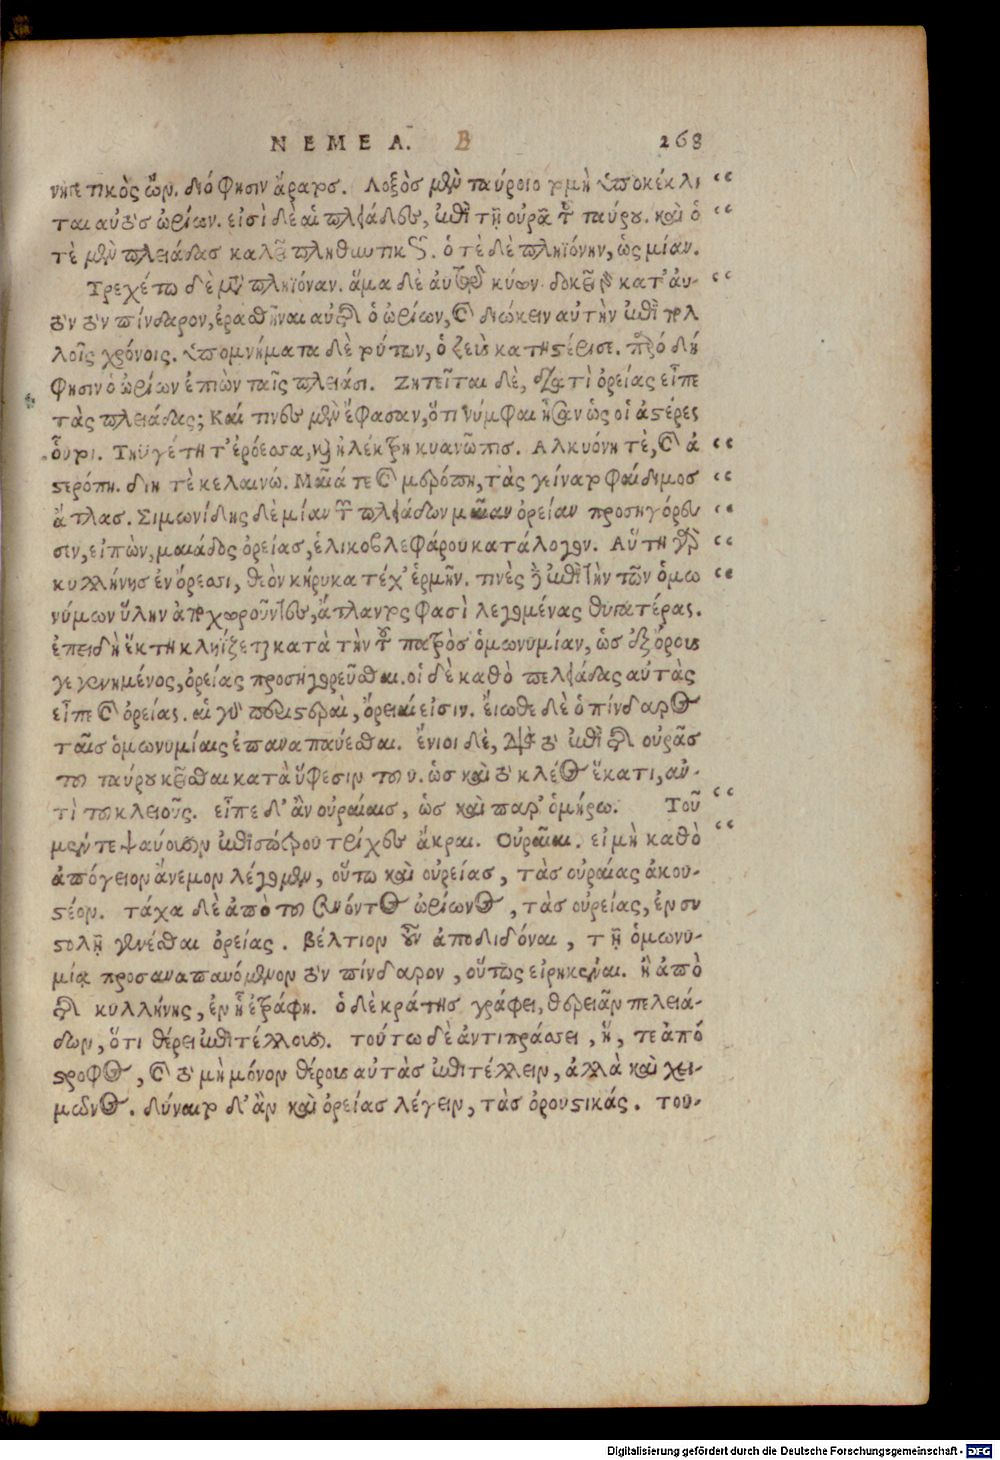 ΝΕΜΕΑ. Β 268
νηγετικὸς ὤν. διό φησιν ἄρατος. Λοξὸς μὲν ταύροιο τομὴ ὑποκέκλι “
ται αὐτὸς ὠρίων. εἰσὶ δὲ αἱ πλειάδες, ἐπὶ τῇ οὐρᾷ τοῦ ταύρου. καὶ ὁ “
τὲ μὲν πλειάδας καλεῖ πληθυντικῶς. ὁ τὲ δὲ πληϊόνην, ὡς μίαν.
Τρεχέτω δὲ μετὰ πληϊόναν. ἅμα δὲ αὐτῷ κύων. δοκεῖ γὰρ κατ’ αὐ- “
τὸν τὸν πίνδαρον, ἐρασθῆναι αὐτῆς ὁ ὠρίων, καὶ διώκειν αὐτὴν ἐπὶ πολ
λοῖς χρόνοις. ὑπομνήματα δὲ τούτων, ὁ ζεὺς κατηστέρισε. πρὸ δή
φησιν ὁ ὠρίων ἐπιὼν ταῖς πλειάσι. Ζητεῖται δὲ, διατὶ ὀρείας εἶπε
τὰς πλειάδας; Καί τινες μὲν ἔφασαν, ὅτι νύμφαι ἦσαν ὡς οἱ ἀστέρες
οὗτοι. Τηϋγέτη τ’ ἐρόεσσα, καὶ ἠλέκτρη κυανῶπις. Αλκυόνη τὲ, καὶ ἀ “
στερόπη. δίη τὲ κελαινώ. Μαῖά τε καὶ μερόπη, τὰς γείνατο φαίδιμος “
ἄτλας. Σιμωνίδης δὲ μίαν τῶν πλειάδων μαῖαν ὀρείαν προσηγόρευ “
σιν, εἰπὼν, μαιάδος ὀρείας, ἑλικοβλεφάρου κατάλογον. Αὕτη γὰρ “
κυλλήνης ἐν ὄρεσσι, θεὸν κήρυκα τέχ’ ἑρμῆν. τινὲς δὲ ἐπὶ τὴν τῶν ὁμω “
νύμων ὕλην ἀποχωροῦντες, ἄτλαντος φασὶ λεγομένας θυγατέρας.
ἐπειδὴ ἕκτη κληΐζεται κατὰ τὴν τοῦ πατρὸς ὁμωνυμίαν, ὡς ἐξ ὄρους
γεγενημένος, ὀρείας προσηγορεῦσθαι. οἱ δὲ καθὸ πελειάδας αὐτὰς
εἶπε καὶ ὀρείας. αἱ γὰρ περιστεραὶ, ὄρειαί εἰσιν. ἔιωθε δὲ ὁ πίνδαρος
ταῖς ὁμωνυμίαις ἐπαναπαύεσθαι. ἔνιοι δὲ, διὰ τὸ ἐπὶ τῆς οὐρᾶς
του ταύρου κεῖσθαι κατὰ ὕφεσιν του υ. ὡς καὶ τὸ κλέος ἕκατι, αν-
τὶ του κλειοῦς. εἶπε δ’ ἂν οὐραίαις, ὡς καὶ παρ’ ὁμήρω. Τοῦ “
μεν τε ψαύουσιν ἐπισσώτρου τρίχες ἄκραι. Οὐραῖαι. εἰ μὴ καθὸ “
ἀπόγειον ἄνεμον λέγομεν, οὕτω καὶ οὐρείας, τὰς οὐραίας ἀκου-
στέον. τάχα δὲ ἀπὸ του οὐρίοντος ὠρίωνος, τὰς οὐρείας, ἐν συ
στολῇ γενέσθαι ὀρείας. βέλτιον οὖν ἀποδιδόναι, τῇ ὁμωνυ-
μίᾳ προσαναπαυόμενον τὸν πίνδαρον, οὕτως εἰρηκέναι. ἢ ἀπὸ
τῆς κυλλήνης, ἐν ᾗ ἐτράφη. ὁ δὲ κράτης γράφει, θερειᾶν πελειά-
δων, ὅτι θέρει ἐπιτέλλουσι. τούτω δὲ ἀντιπράσσει, ἥ, τε ἀπό
στροφος, καὶ τὸ μὴ μόνον θέρους αὐτὰς ἐπιτέλλειν, ἀλλὰ καὶ χει-
μῶνος. δύναιτο δ’ ἂν καὶ ὀρείας λέγειν, τὰς ὀρουστικάς. του-
Digitalisierung gefördert durch die Deutsche Forschungsgemeinschaft - DFG